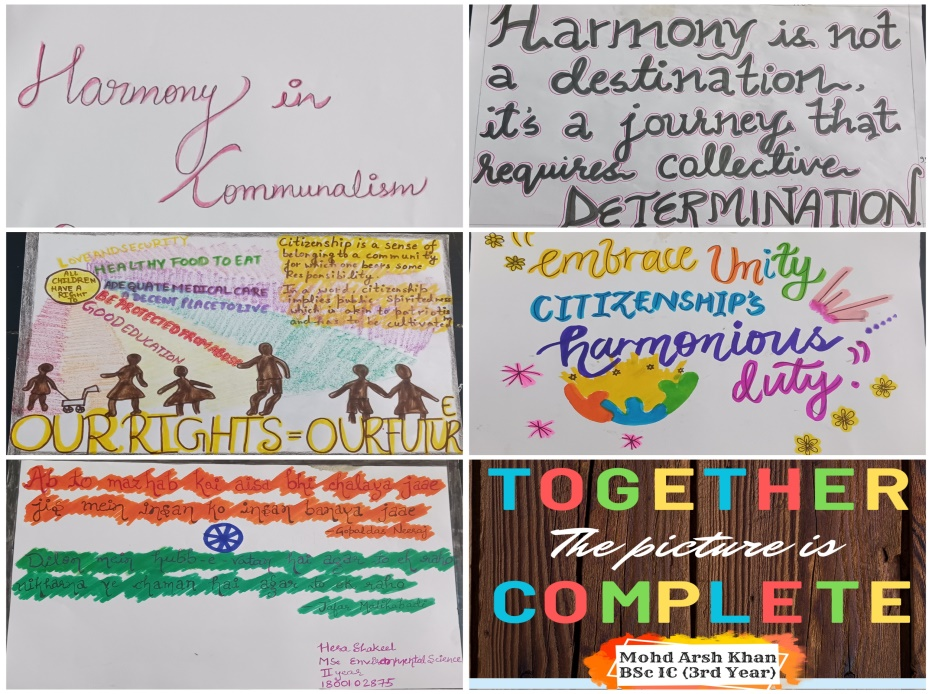 Harmony in
Communalism
Harmony is not
a destination,
it's a journey that
requires collective
DETERMINATION"
LOVE AND SECURITY
HEALTHY FOOD TO EAT
ALL
CHILDREN
HAVE A
RIGHT
TO
ADEQUATE MEDICAL CARE
A DECENT PLACE TO LIVE
BE PROTECTED FROM ABUSE
GOOD EDUCATION
Citizenship is a sense of
belonging to a community
for which one bears some
Responsibility
In a word, citizenship
implies public spiritedness
which is akin to patriotis
and has to be cultivated
OUR RIGHTS = OUR FUTURE
"embrace Unity
CITIZENSHIP'S
harmonious
duty."
Ab to mazhab koi aisa bhi chalaya jaae
jis mein insan ko insan banaya jaae
Gopaldas Neeraj
Dilon mein hubb-e-vatan hai agar to ek raho
nikharna ye chaman hai agar to ek raho
Jafar Malihabadi
Hera Shakeel
MSc Environmental Science
II year
1800102875
TOGETHER
The picture is
COMPLETE
Mohd Arsh Khan
BSc IC (3rd Year)